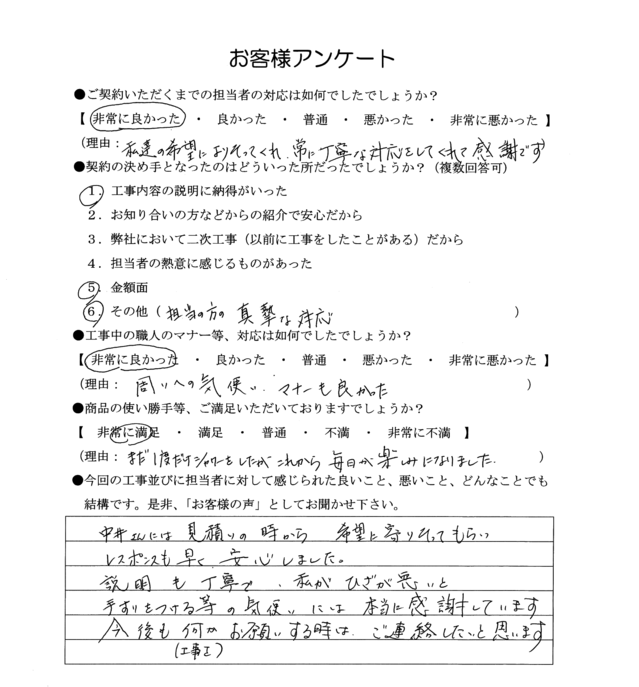 お客様アンケート
●ご契約いただくまでの担当者の対応は如何でしたでしょうか？
【 非常に良かった ・ 良かった ・ 普通 ・ 悪かった ・ 非常に悪かった 】
(理由： 私達の希望によりそってくれ、常に丁寧な対応をしてくれて感謝です
●契約の決め手となったのはどういった所だったでしょうか？（複数回答可）
1．工事内容の説明に納得がいった
2．お知り合いの方などからの紹介で安心だから
3．弊社において二次工事（以前に工事をしたことがある）だから
4．担当者の熱意に感じるものがあった
5．金額面
6．その他（担当の方の 真摯な対応 ）
●工事中の職人のマナー等、対応は如何でしたでしょうか？
【 非常に良かった ・ 良かった ・ 普通 ・ 悪かった ・ 非常に悪かった 】
(理由： 周りへの気使い、マナーも良かった )
●商品の使い勝手等、ご満足いただいておりますでしょうか？
【 非常に満足 ・ 満足 ・ 普通 ・ 不満 ・ 非常に不満 】
(理由： まだ1度だけシャワーをしたが これから 毎日が楽しみになりました. )
●今回の工事並びに担当者に対して感じられた良いこと、悪いこと、どんなことでも
結構です。是非、「お客様の声」としてお聞かせ下さい。
中井さんには 見積りの時から 希望に寄りそってもらい
レスポンスも早く 安心しました。
説明も丁寧で、私がひざが悪いと
手すりをつける等の気使いには 本当に感謝しています
今後も何かお願いする時は、ご連絡したいと思います
(工事工)